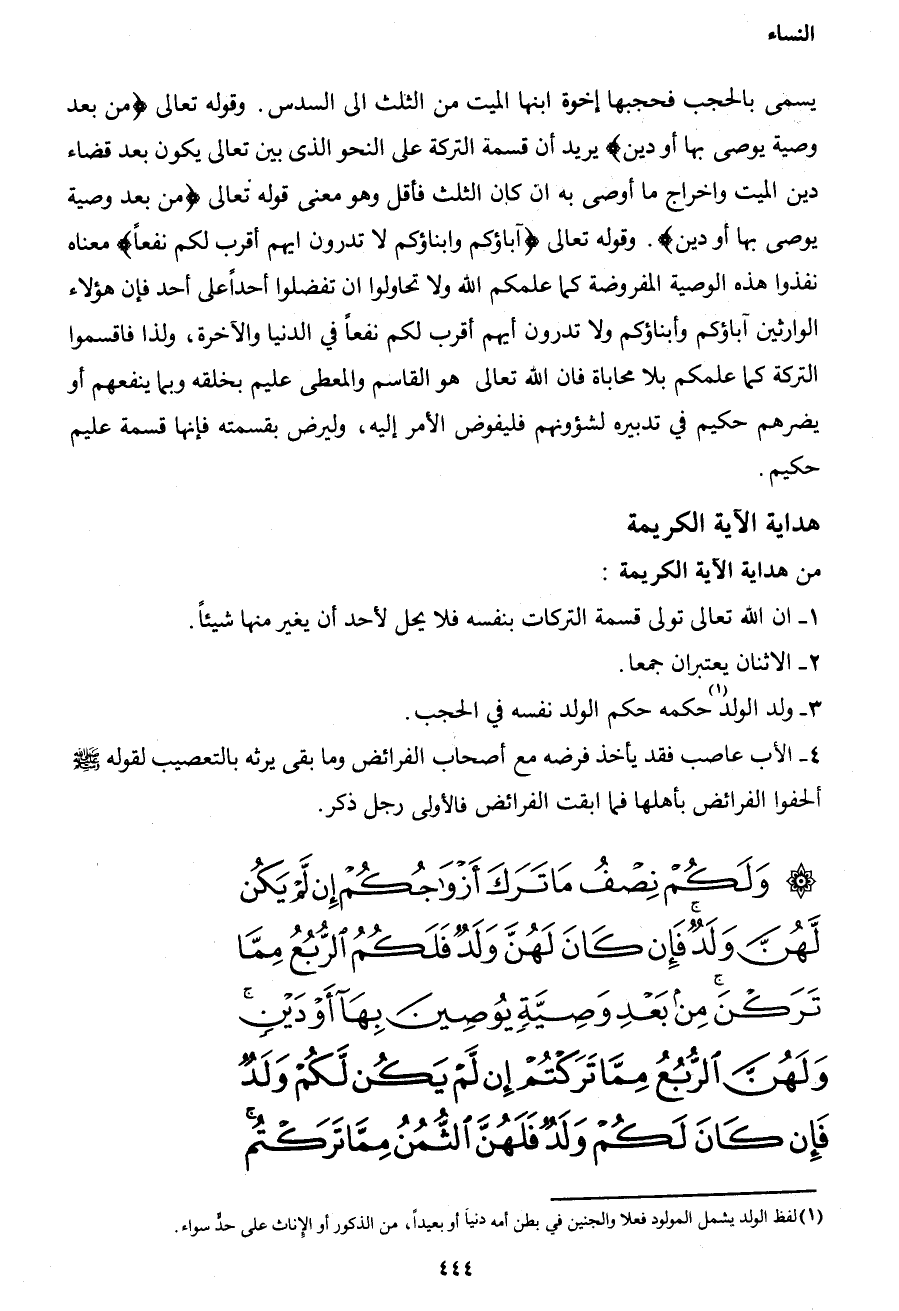 النساء
يسمى بالحجب فحجبها إخوة ابنها الميت من الثلث الى السدس. وقوله تعالى ﴿من بعد
وصية يوصى بها أو دين﴾ يريد أن قسمة التركة على النحو الذى بين تعالى يكون بعد قضاء
دين الميت واخراج ما أوصى به ان كان الثلث فأقل وهو معنى قوله تعالى ﴿من بعد وصية
يوصى بها أو دين﴾. وقوله تعالى ﴿آباؤكم وابناؤكم لا تدرون ايهم أقرب لكم نفعاً﴾ معناه
نفذوا هذه الوصية المفروضة كما علمكم الله ولا تحاولوا ان تفضلوا أحداً على أحد فإن هؤلاء
الوارثين آباؤكم وأبناؤكم ولا تدرون أيهم أقرب لكم نفعاً في الدنيا والآخرة، ولذا فاقسموا
التركة كما علمكم بلا محاباة فان الله تعالى هو القاسم والمعطى عليم بخلقه وبما ينفعهم أو
يضرهم حكيم في تدبيره لشؤونهم فليفوض الأمر إليه، وليرض بقسمته فإنها قسمة عليم
حكيم.
هداية الآية الكريمة
من هداية الآية الكريمة :
١ـ ان الله تعالى تولى قسمة التركات بنفسه فلا يحل لأحد أن يغير منها شيئاً.
٢ـ الاثنان يعتبران جمعا.
٣ـ ولد الولد(١) حكمه حكم الولد نفسه في الحجب.
٤ـ الأب عاصب فقد يأخذ فرضه مع أصحاب الفرائض وما بقى يرثه بالتعصيب لقوله ﷺ
ألحفوا الفرائض بأهلها فما ابقت الفرائض فالأولى رجل ذكر.
۞ وَلَكُمْ نِصْفُ مَا تَرَكَ أَزْوَٰجُكُمْ إِن لَّمْ يَكُن
لَّهُنَّ وَلَدٌ ۚ فَإِن كَانَ لَهُنَّ وَلَدٌ فَلَكُمُ ٱلرُّبُعُ مِمَّا
تَرَكْنَ ۚ مِنۢ بَعْدِ وَصِيَّةٍ يُوصِينَ بِهَآ أَوْ دَيْنٍ ۚ
وَلَهُنَّ ٱلرُّبُعُ مِمَّا تَرَكْتُمْ إِن لَّمْ يَكُن لَّكُمْ وَلَدٌ
فَإِن كَانَ لَكُمْ وَلَدٌ فَلَهُنَّ ٱلثُّمُنُ مِمَّا تَرَكْتُم ۚ
(١) لفظ الولد يشمل المولود فعلا والجنين في بطن أمه دنياً أو بعيداً، من الذكور أو الإناث على حدٍّ سواء.
٤٤٤